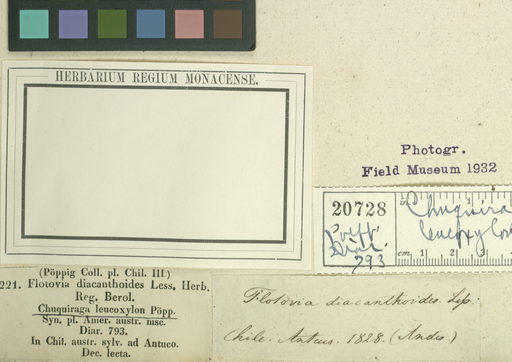 HERBARIUM REGIUM MONACENSE.
Photogr.
Field Museum 1932
20728
in.
1
Chuquira
leucoxylon
Poepp.
Diar.
793
cm.
1 2 3
(Pöppig Coll. pl. Chil. III)
221. Flotovia diacanthoides Less. Herb.
Reg. Berol.
Chuquiraga leucoxylon Pöpp.
Syn. pl. Amer. austr. msc.
Diar. 793.
In Chil. austr. sylv. ad Antuco.
Dec. lecta.
Flotovia diacanthoides. Less:
Chile. Antuco. 1828. (Andes)